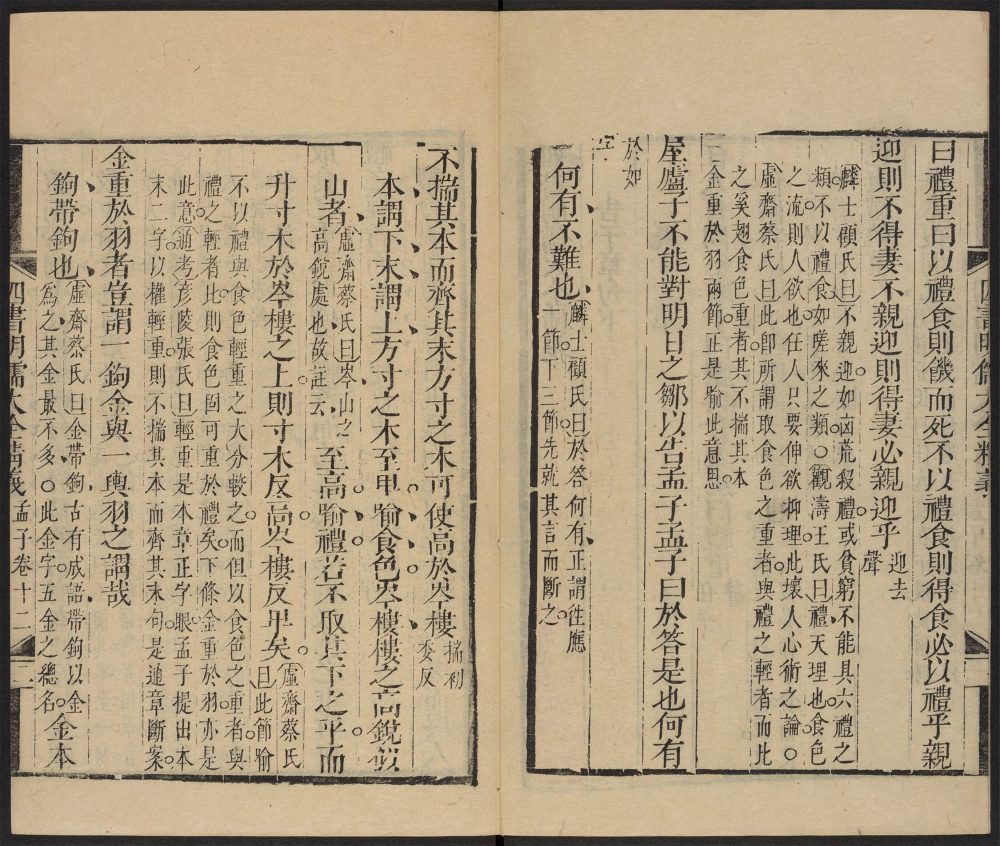 曰禮重曰以禮食則饑而死不以禮食則得食必以禮乎親
迎則不得妻不親迎則得妻必親迎乎迎去
聲
麟士顧氏曰不親迎如凶荒殺禮或貧窮不能具六禮之
類不以禮食如嗟來之類○觀濤王氏曰禮天理也食色
之流則人欲也任人只要伸欲抑理此壞人心術之論○
虛齋蔡氏曰此即所謂取食色之重者與禮之輕者而比
之奚翅食色重者其不揣其本
二金重於羽兩節正是喻此意思
屋廬子不能對明日之鄒以告孟子孟子曰於答是也何有
於如
字
何有不難也麟士顧氏曰於答何有正謂徃應
一節下三節先就其言而斷之
不揣其本而齊其末方寸之木可使高於岑樓揣初
委反
本謂下末謂上方寸之木至卑喻食色岑樓樓之高銳似
山者虛齋蔡氏曰岑山之
高銳處也故註云至高喻禮若不取其下之平而
升寸木於岑樓之上則寸木反高岑樓反卑矣虛齋蔡氏
曰此節喻
不以禮與食色輕重之大分較之而但以食色之重者與
禮之輕者比則食色固可重於禮矣下條金重於羽亦是
此意通考彥陵張氏曰輕重是本章正字眼孟子提出本
末二字以權輕重則不揣其本而齊其末句是通章斷案
金重於羽者豈謂一鉤金與一輿羽之謂哉
鉤帶鉤也虛齋蔡氏曰金帶鉤古有成語帶鉤以金
爲之其金最不多○此金字五金之總名金本
四書明儒大全精義 孟子卷十二 二